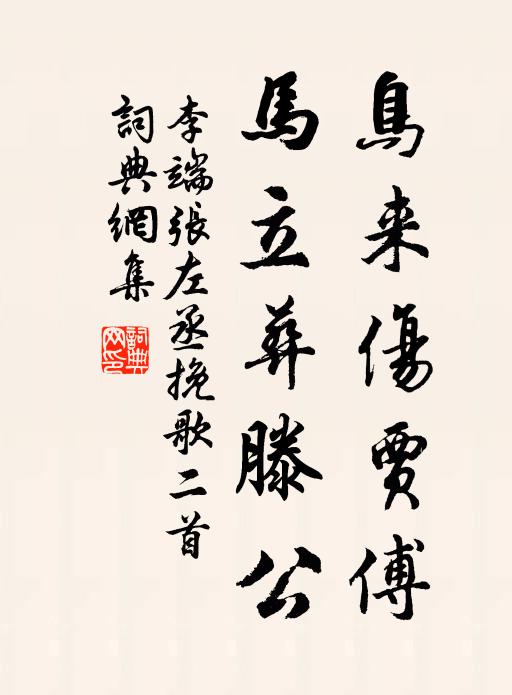 鳥来傷賈傅
馬立葬滕公
李端張左丞挽歌二首
詞典網集
詞典网印